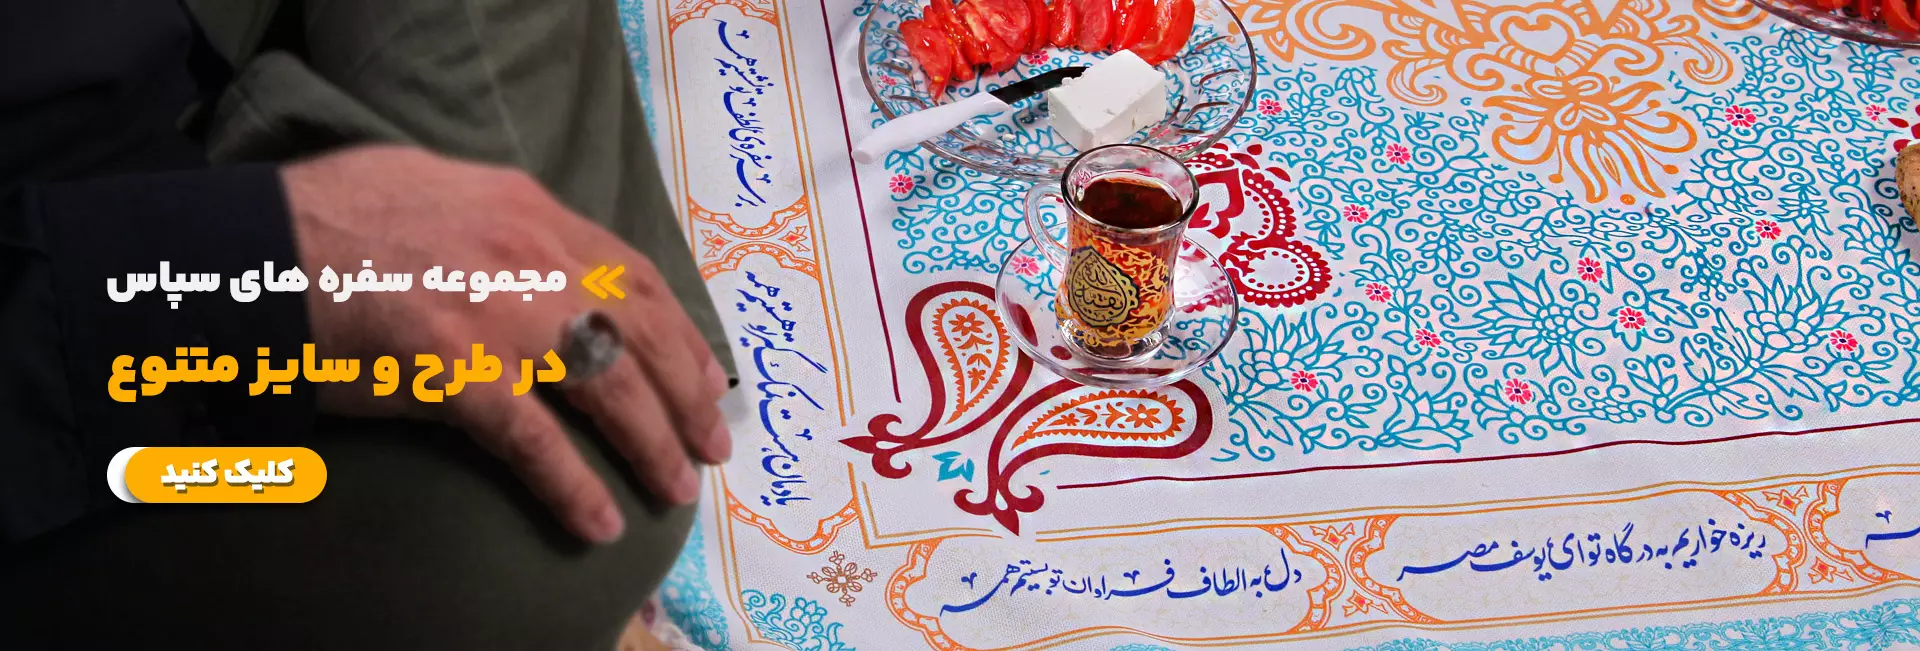 مجموعه سفره های سپاس
در طرح و سایز متنوع
کلیک کنید
بر سر سفره‌ی لطف تو نشستیم همه
ریزه خواریم به درگاه تو ای یوسف مصر
دل به الطاف فراوان تو بستیم همه